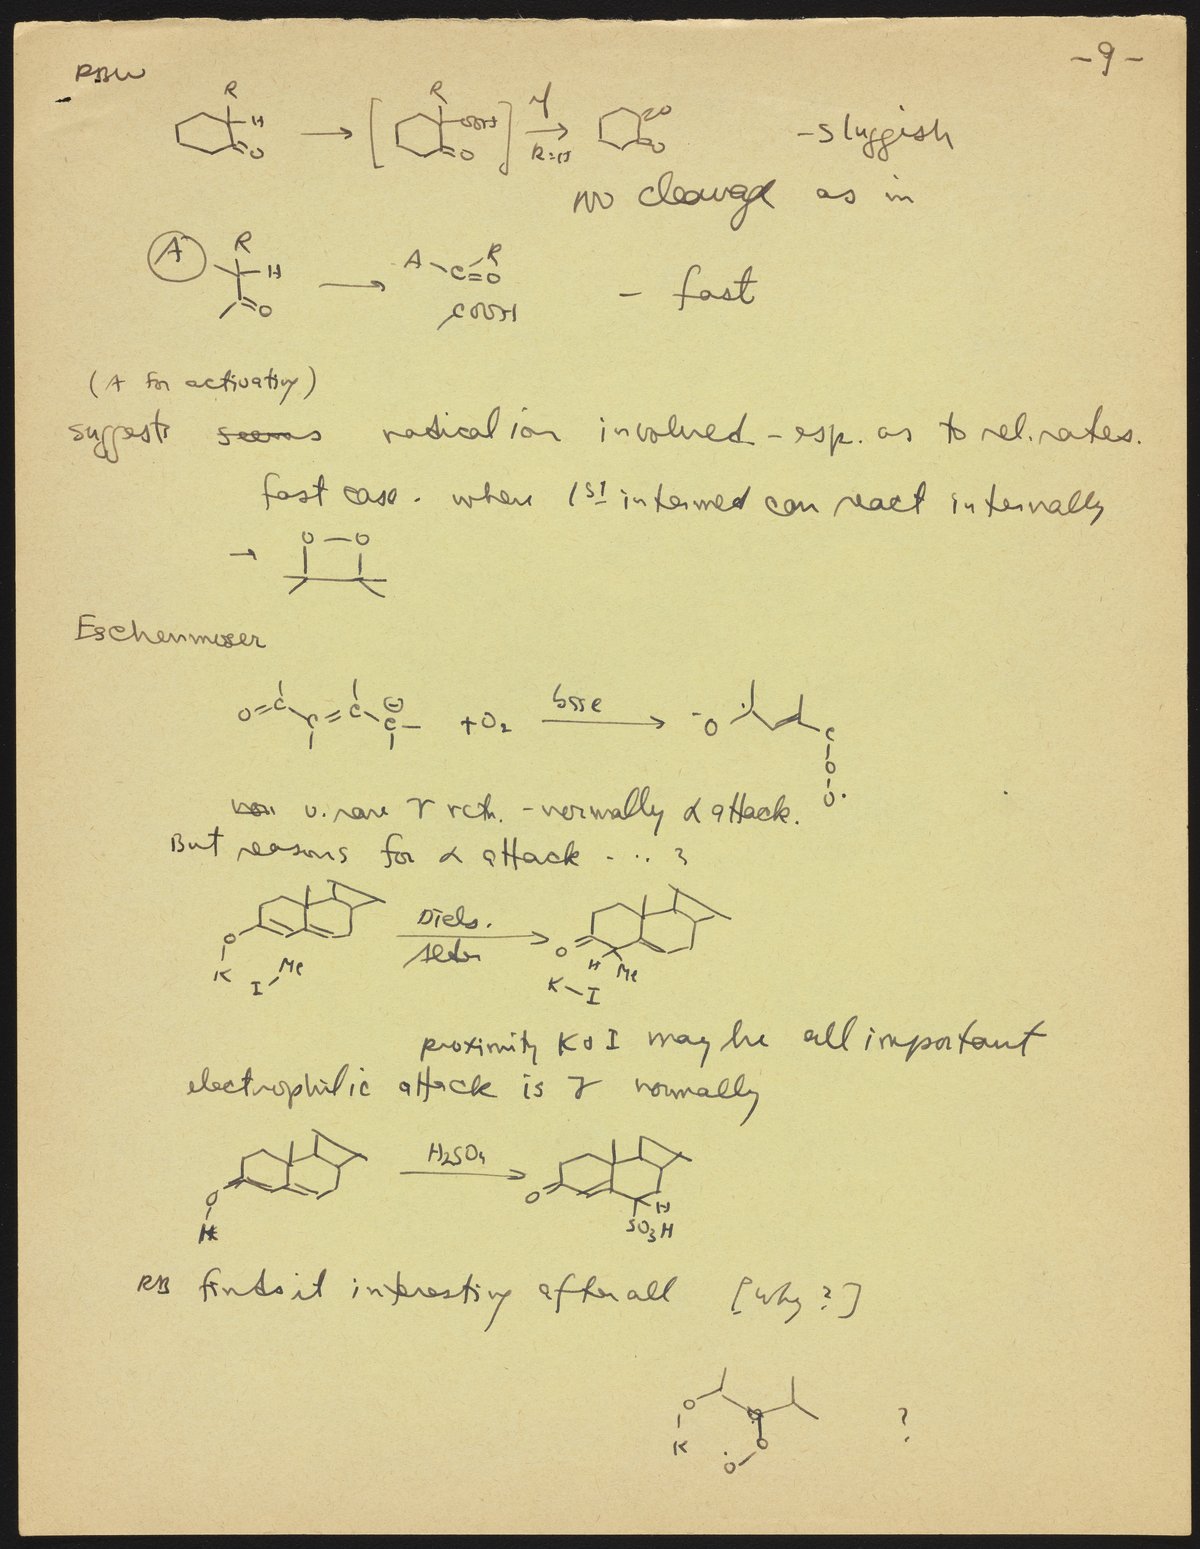 -9-
RBW
R
H
O
R
OOH
O
R=H
O
O
- sluggish
no cleavage as in
A
R
H
O
A
C=O
R
COOH
- fast
(A for activating)
suggests seems radical ion involved - esp. as to rel. rates.
fast case. where 1st intermed can react internally
→ O—O
Eschenmoser
O=C
C=C
C
⊖
+O2
base
-O
C
O
O·
v. rare γ rctn. - normally α attack.
But reasons for α attack - .. ?
O
K
I
Me
Diels.
Alder
O
H
Me
K-I
proximity K & I may be all important
electrophilic attack is γ normally
O
H
H2SO4
O
H
SO3H
RB finds it interesting after all [why?]
O
K
O
O
?